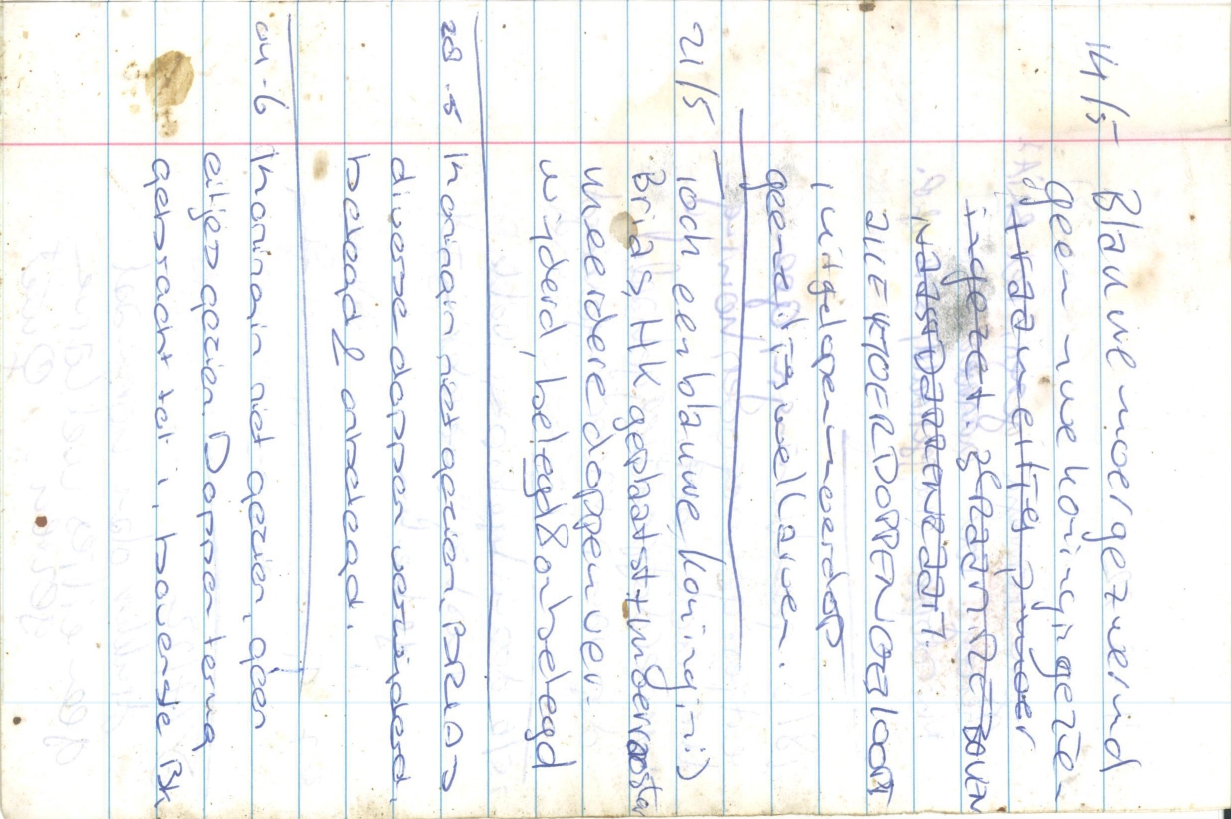 14/5 Blauwe moer gezwermd
geen nwe koningin gezie-
+ raam eitjes p moer
ingezet. gRaam RE BOVEN
NAAST DARRENRAAT.
ALLE ANDER DOPPEN GEZLOOPT
1 uitgelopen moerdop
geen eitjes wel larven.
21/5 Toch een blauwe koningin:)
Brias, HK geplaatst + moerrooster
meerdere doppen ver-
wijderd, belegd & onbelegd
28-5 Koningin niet gezien, BRIAS
diverse doppen verwijderd.
belegd & onbelegd.
04-6 Koningin niet gezien, geen
eitjes gezien. Doppen terug
gebracht tot 1, bovenste Bk